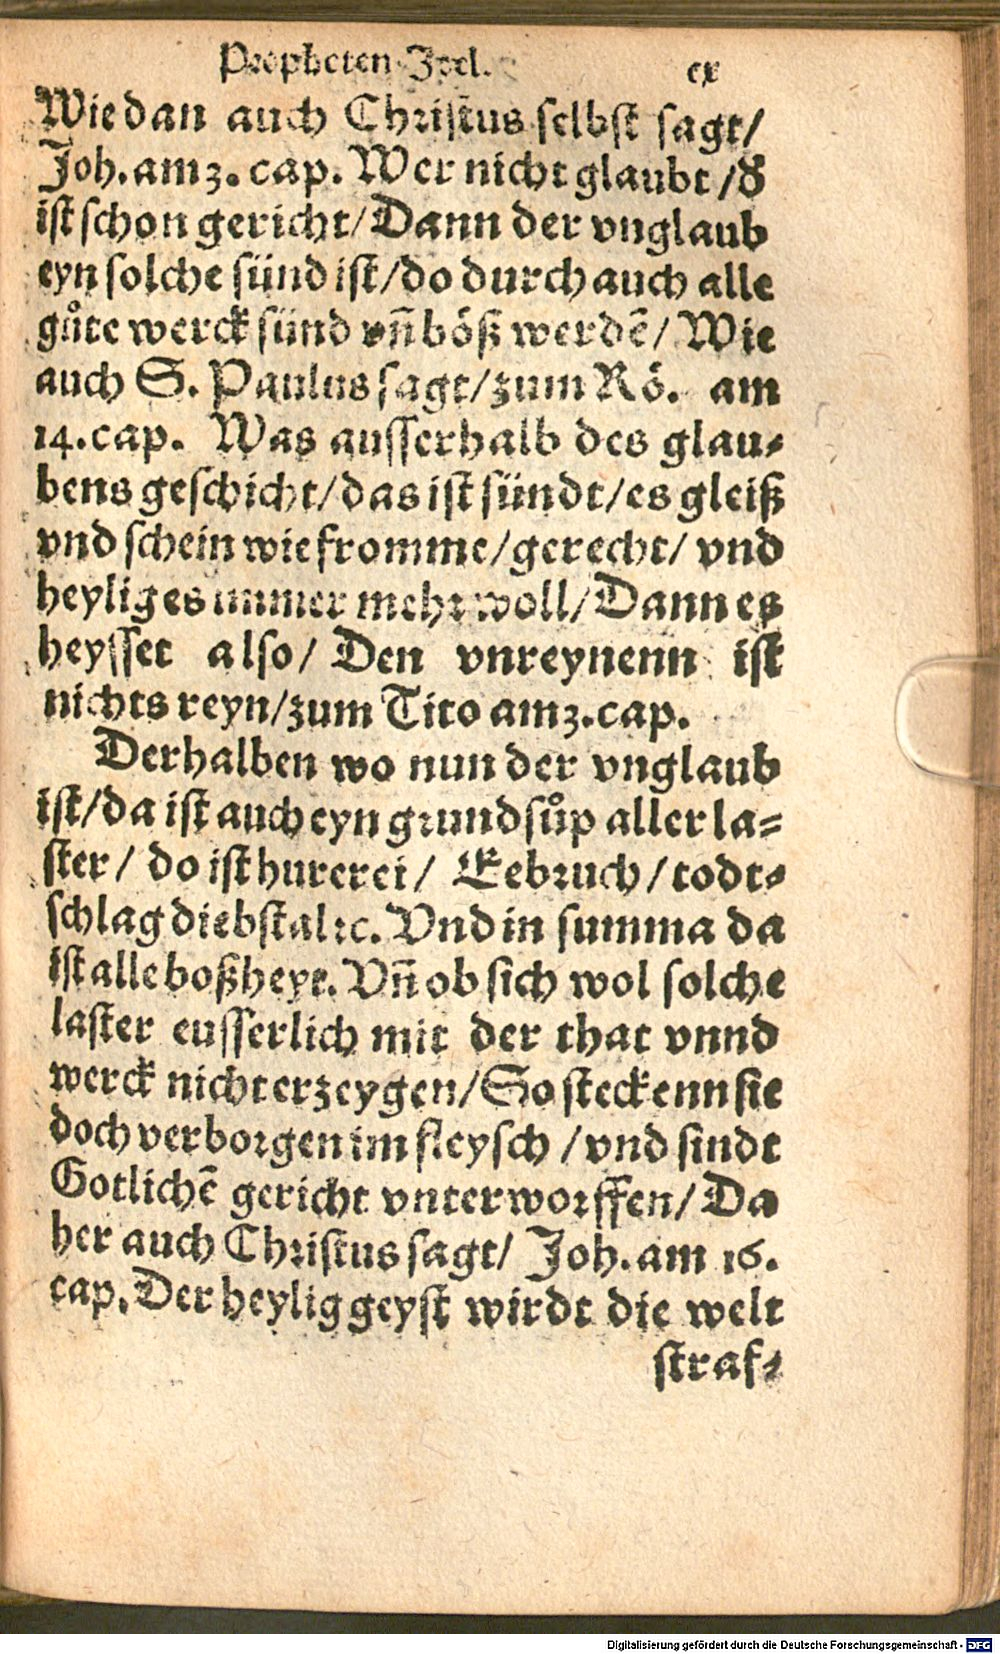 Propheten Joel. cx
Wie dan auch Christus selbst sagt/
Joh. am 3. cap. Wer nicht glaubt / d̕
ist schon gericht/ Dann der vnglaub
eyn solche sünd ist/ do durch auch alle
gůte werck sünd vñ böß werdẽ/ Wie
auch S. Paulus sagt/ zum Rö. am
14. cap. Was ausserhalb des glau-
bens geschicht/ das ist sündt/ es gleiß
vnd schein wie fromme/ gerecht/ vnd
heylig es immer mehr woll/ Dann es
heysset also/ Den vnreynenn ist
nichts reyn/ zum Tito am 3. cap.
Derhalben wo nun der vnglaub
ist/ da ist auch eyn grundsůp aller la-
ster/ do ist hurerei/ Eebruch/ todt-
schlag diebstal ꝛc. Vnd in summa da
ist alle boßheyt. Vñ ob sich wol solche
laster eusserlich mit der that vnnd
werck nicht erzeygen/ So steckenn sie
doch verborgen im fleysch / vnd sindt
Gotlichẽ gericht vnterworffen/ Da
her auch Christus sagt/ Joh. am 16.
cap. Der heylig geyst wirdt die welt
straf-
Digitalisierung gefördert durch die Deutsche Forschungsgemeinschaft - DFG